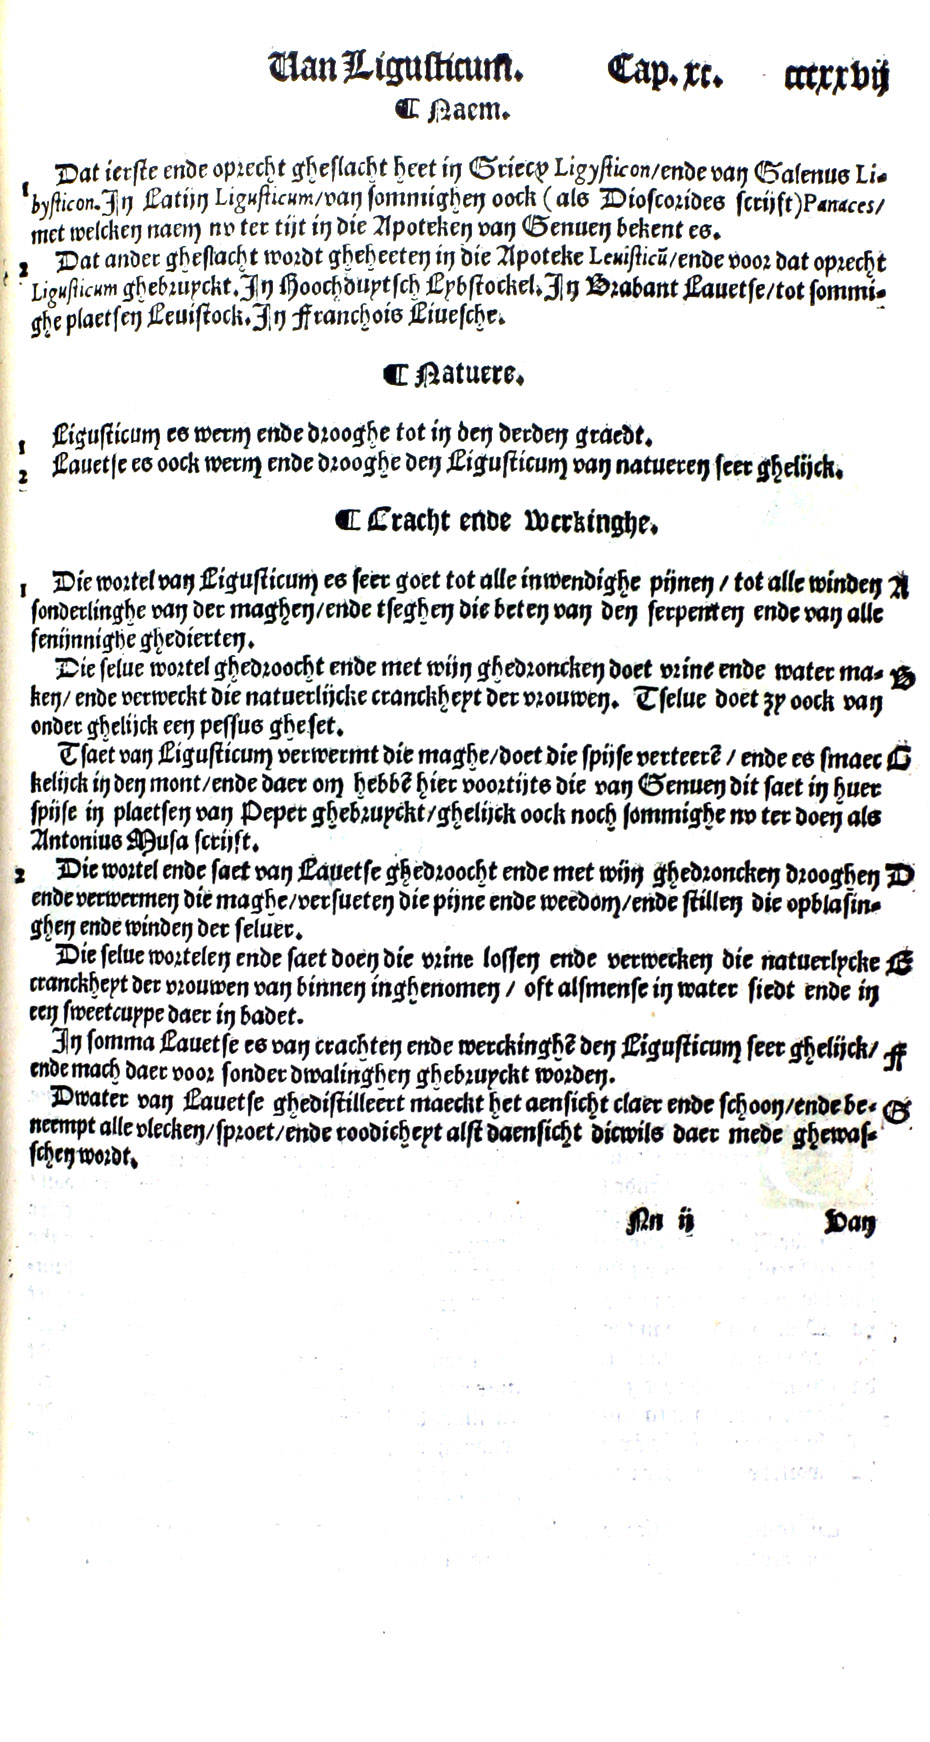 Van Ligusticum. Cap. xc. cccxxvij
¶ Naem.
1 Dat ierste ende oprecht gheslacht heet in Griecx Ligysticon/ende van Galenus Li-
bysticon. In Latijn Ligusticum/van sommighen oock (als Dioscorides scrijft) Panaces/
met welcken naem nv ter tijt in die Apoteken van Genuen bekent es.
2 Dat ander gheslacht wordt gheheeten in die Apoteke Leuisticū/ende voor dat oprecht
Ligusticum ghebruyckt. In Hoochduytsch Lybstockel. In Brabant Lauetse/tot sommi-
ghe plaetsen Leuistock. In Franchois Liuesche.
¶ Natuere.
1 Ligusticum es werm ende drooghe tot in den derden graedt.
2 Lauetse es oock werm ende drooghe den Ligusticum van natueren seer ghelijck.
¶ Cracht ende Werkinghe.
1 Die wortel van Ligusticum es seer goet tot alle inwendighe pijnen / tot alle winden A
sonderlinghe van der maghen/ende tseghen die beten van den serpenten ende van alle
fenijnnighe ghedierten.
Die selue wortel ghedroocht ende met wijn ghedroncken doet vrine ende water ma- B
ken/ ende verweckt die natuerlijcke cranckheyt der vrouwen. Tselue doet zy oock van
onder ghelijck een pessus gheset.
Tsaet van Ligusticum verwermt die maghe/doet die spijse verteerē / ende es smaec C
kelijck in den mont/ende daer om hebbē hier voortijts die van Genuen dit saet in huer
spijse in plaetsen van Peper ghebruyckt/ghelijck oock noch sommighe nv ter doen als
Antonius Musa scrijft.
2 Die wortel ende saet van Lauetse ghedroocht ende met wijn ghedroncken drooghen D
ende verwermen die maghe/versueten die pijne ende weedom/ende stillen die opblasin-
ghen ende winden der seluer.
Die selue wortelen ende saet doen die vrine lossen ende verwecken die natuerlycke E
cranckheyt der vrouwen van binnen inghenomen / oft alsmense in water siedt ende in
een sweetcuype daer in badet.
In somma Lauetse es van crachten ende werckinghē den Ligusticum seer ghelijck/ F
ende mach daer voor sonder dwalinghen ghebruyckt worden.
Dwater van Lauetse ghedistilleert maeckt het aensicht claer ende schoon/ende be- G
neempt alle vlecken/sproet/ende roodicheyt alst daensicht dicwils daer mede ghewas-
schen wordt.
Nn ij Van